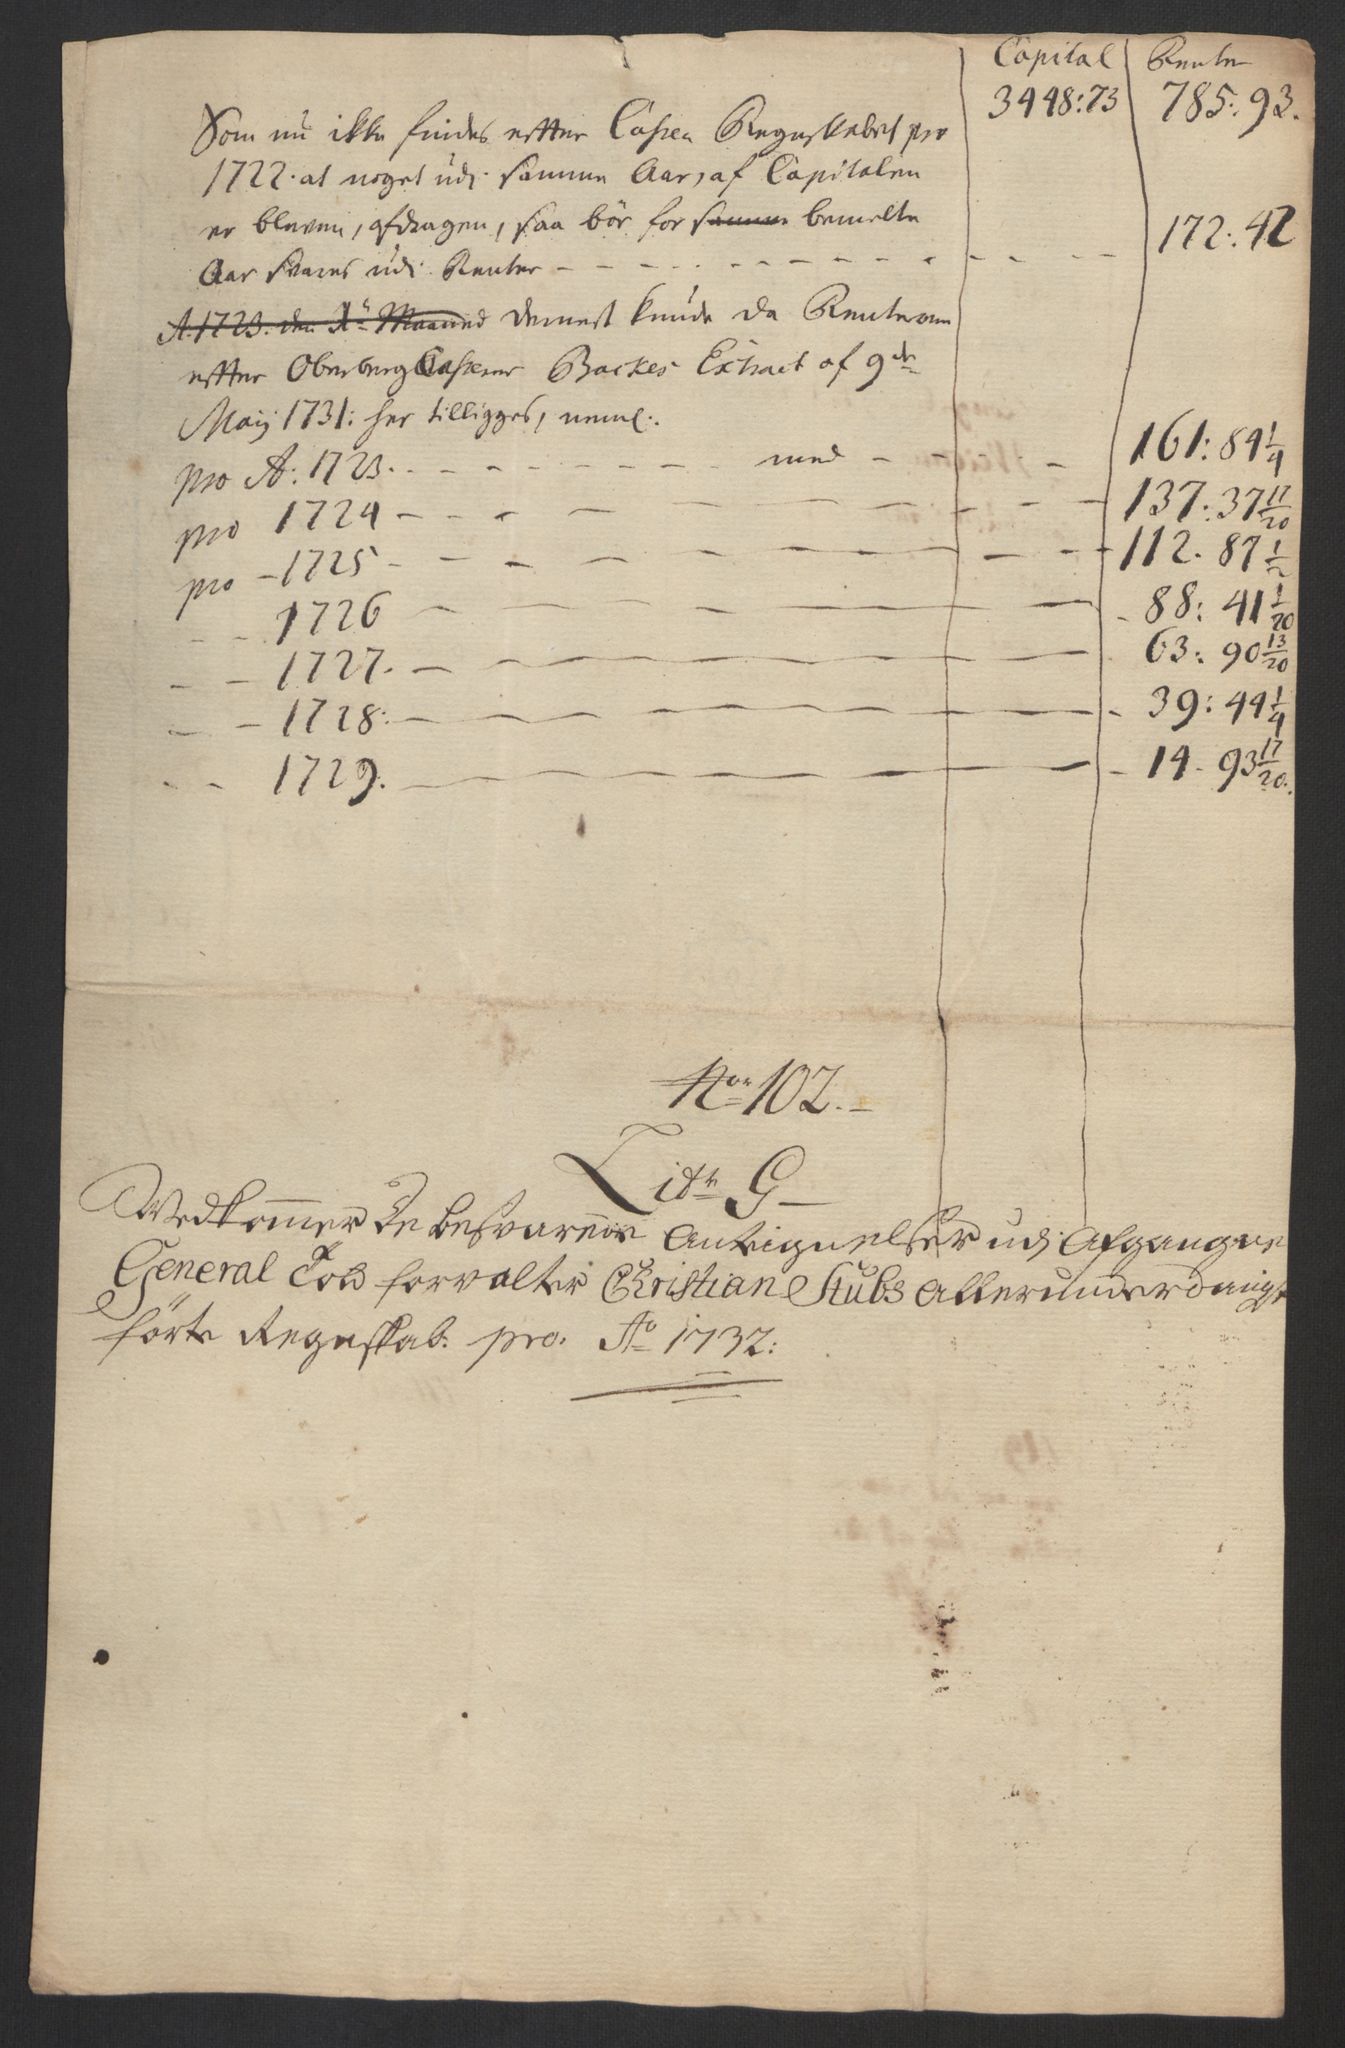 Capital Renter
3448:73 785:93.
Som nu ikke findes effter Cassen Regnskabet pro
1722. at noget udj samme Aar, af Capitalen
er bleven, afdragen, saa bör for samme bemelte
Aar svares udj Renter - - - 172:42
A. 1723. den X Maaned dernest kunde da Renterne
effter Oberberg Casserer Backes Extract af 9de
Maij 1731: her tilligges, neml:
pro A: 1723. - - - med - - - 161: 84 1/4
pro 1724 - - - 137: 37 17/20
pro - 1725 - - - 112. 87 1/2
- - 1726 - - - 88: 41 1/20
- - 1727. - - - 63: 90 13/20
- - 1728: - - - 39: 44 1/4
- - 1729. - - - 14 - 93 17/20.
No 102.
Litr G
Vedkommer De besvarede Antegnelser udj Afgangne
General Told forvalter Christian Stubs Allerunderdanigst
förte Regnskab. pro. Ao 1732: